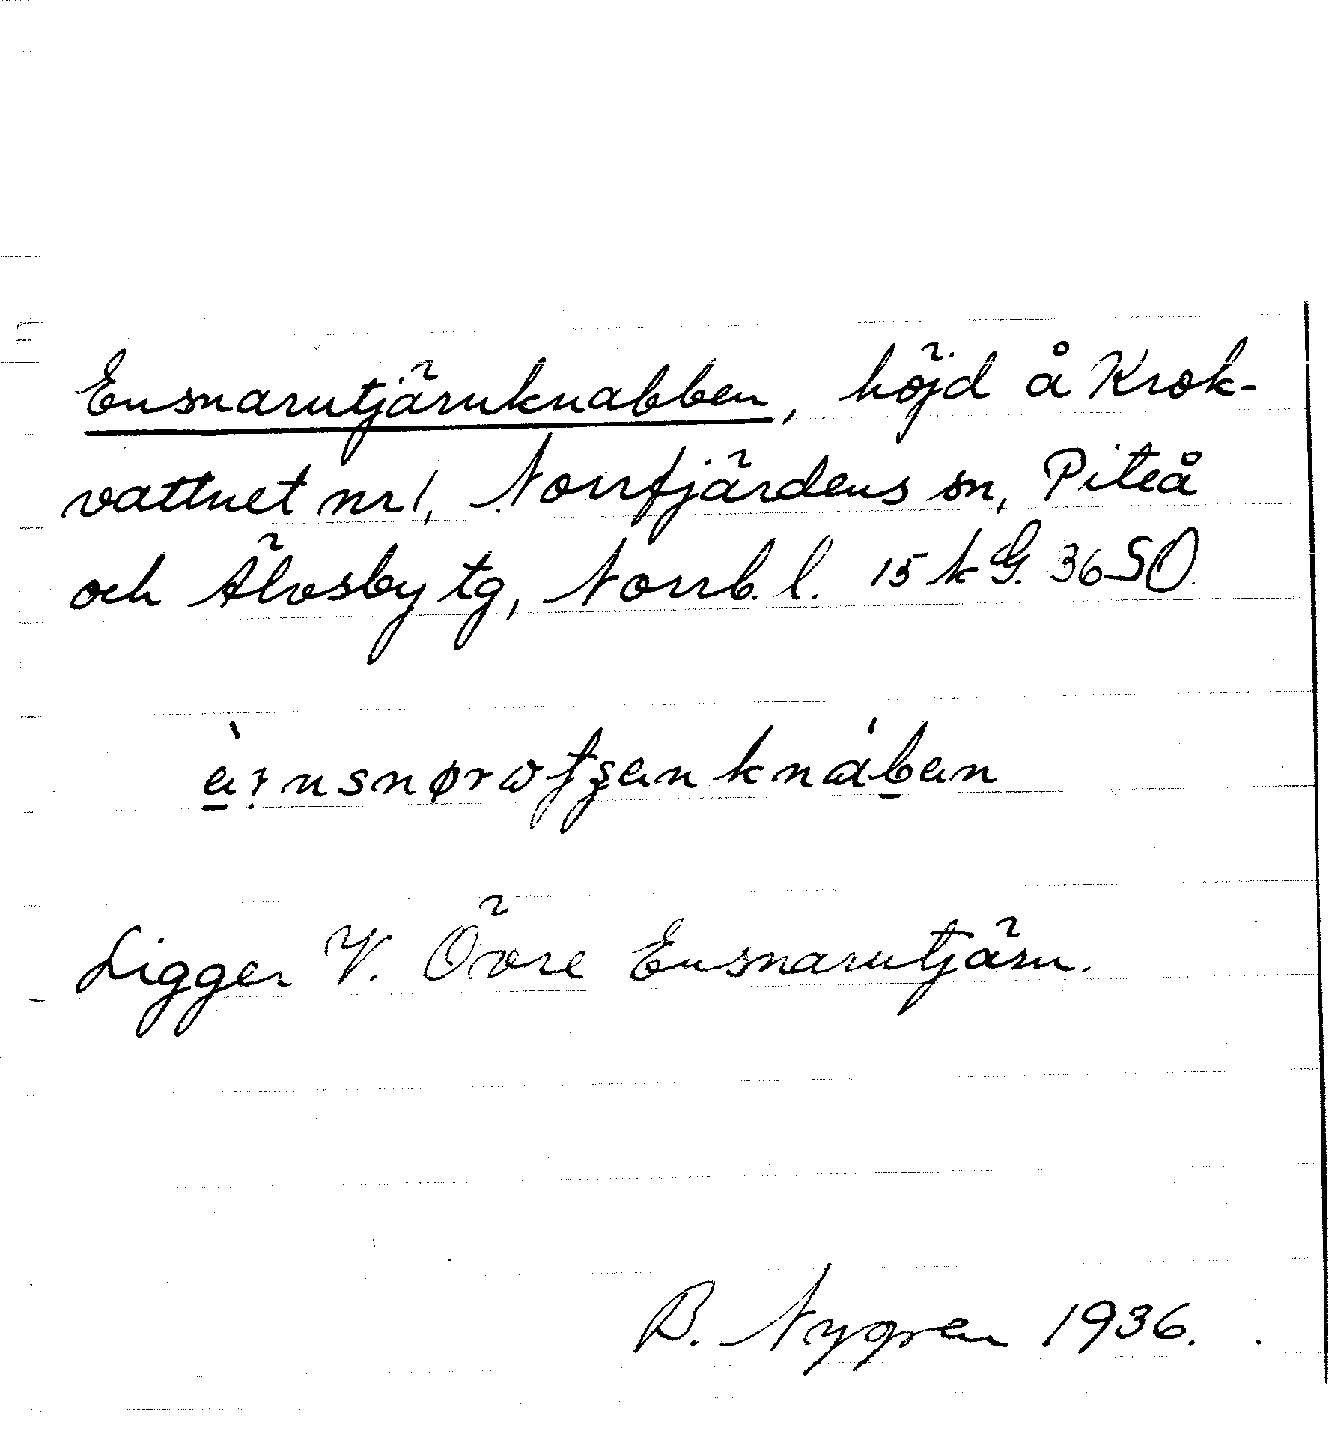 Ensnarutjärnknabben, höjd å Krok-
vattnet nr 1, Norrfjärdens sn, Piteå
och Älvsby tg, Norrb. l. 15 k G. 36 SO.
Ligger V. Övre Ensnarutjärn.
B. Nygren 1936.